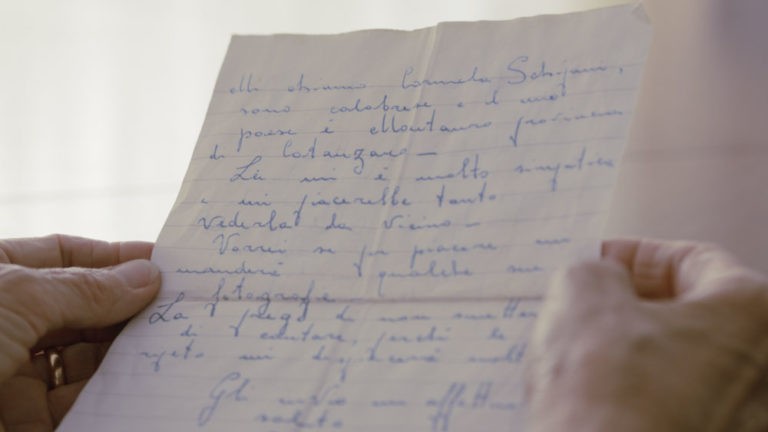 Mi chiamo Carmela
sono calabrese e il mio
paese è Montauro provincia
di Catanzaro –
Lei mi è molto simpatica
e mi piacerebbe tanto
vederla da vicino –
Vorrei se per piacere mi
manderà qualche sua
fotografia
La prego di non smettere
di cantare, perchè le
ripeto mi dispiacerà molt
Gli invio un affettuo
saluto